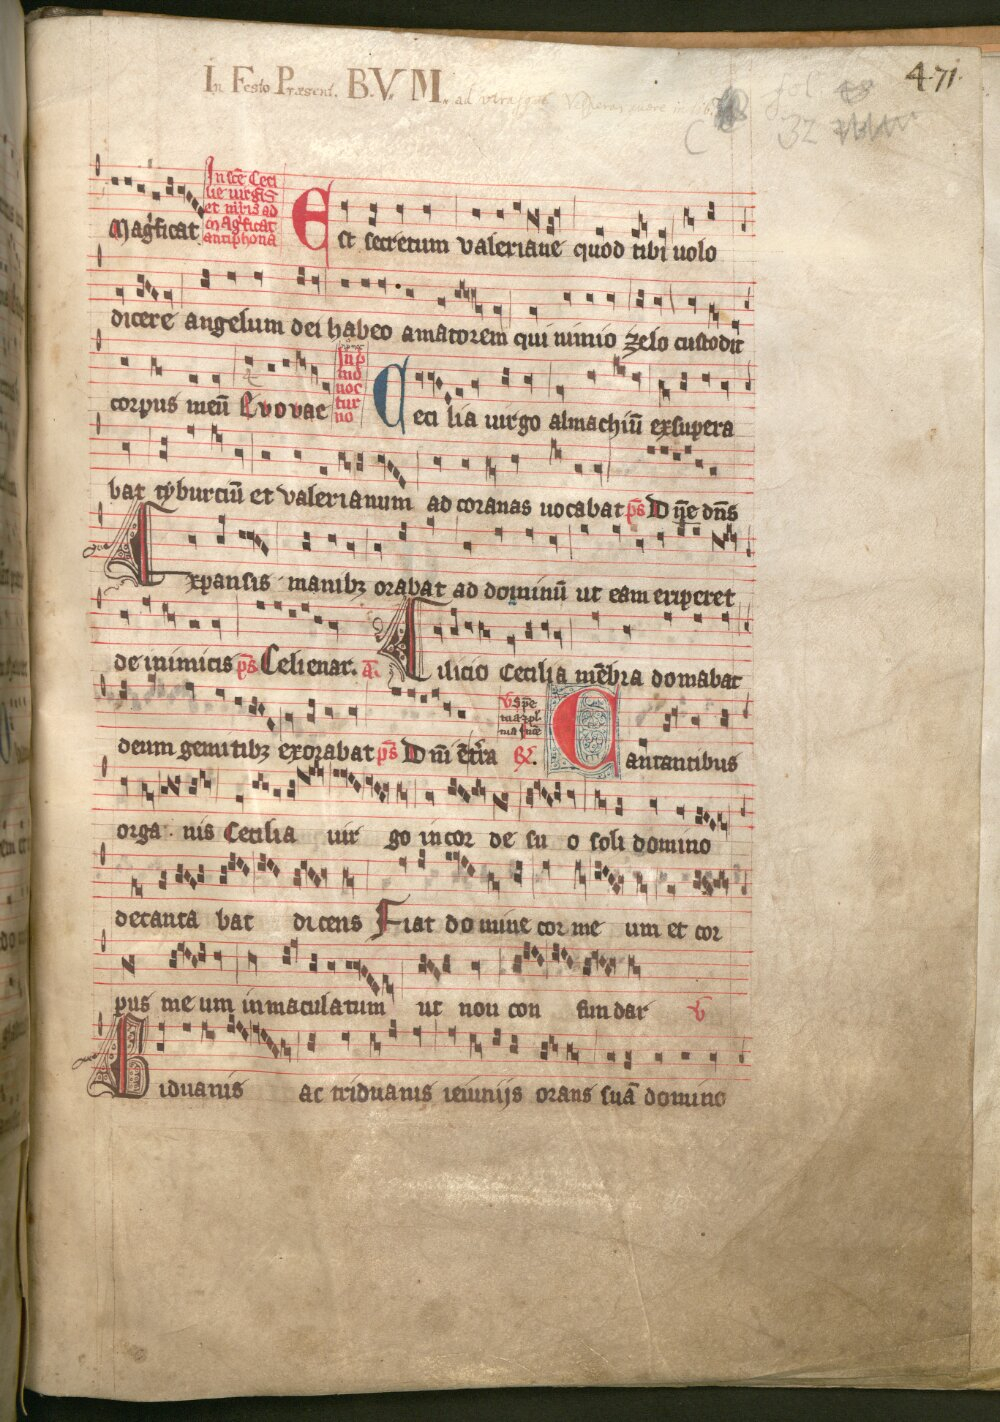 In Festo Præsent. B.V. M. ad utrasque Vesperas
471
fol
C 32
Magficat
In scē Ceci
lie uirgīs
et mrīs ad
magficat
antiphona
Est secretum valeriane quod tibi uolo
dicere angelum dei habeo amatorem qui nimio zelo custodit
corpus meū Evovae
In p
mo
noc
tur
no
Ceci lia uirgo almachiū exsupera
bat tyburciū et valerianum ad coronas uocabat ps D ne dn̄s
Expansis manibz orabat ad dominū ut eam eriperet
de inimicis ps Celi enar. a. Cilicio Cecilia mēbra domabat
deum gemitibz exorabat ps Dn̄i ē t̄ra
V Spē
tua
R. Cantantibus
orga nis Cecilia uir go in cor de su o soli domino
decanta bat dicens Fiat domine cor me um et cor
pus me um inmaculatum ut non con fun dar V
Biduanis ac triduanis ieiuniis orans suā domino